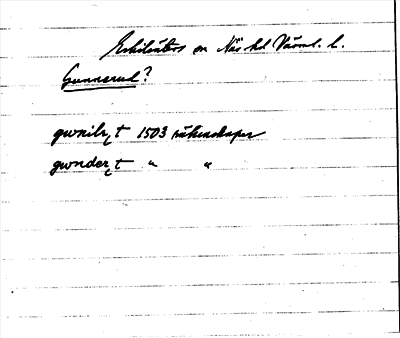 Eskilsäters sn Näs hd Värml. l.
Gunnerud?
gwnilr,t 1503 räkenskaper
gwnder,t " "